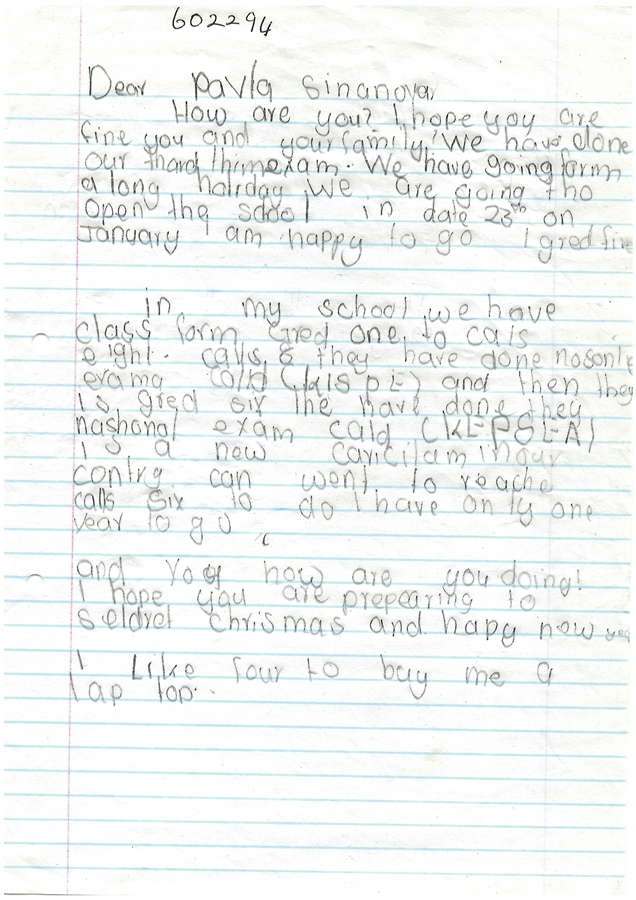 602294
Dear Pavla Sinanova
How are you? I hope you are
fine you and your family. We have done
our thard thimexam. We have going form
a long haliday We are going tho
open the sdool in date 23th on
January I am happy to go I gred five
in my school we have
class form Gred one to cals
eight. calls 8 they have done nosonle
exama cald (calspe) and then they
Is gred six the have done they
nashonal exam cald (KEPSEA)
I s a new caricilam in our
contry can went to reache
calls six to do I have only one
year to go
and you how are you doing!
I hope you are prepearing to
seldret chrismas and hapy now yea
I Like four to buy me a
lap top.